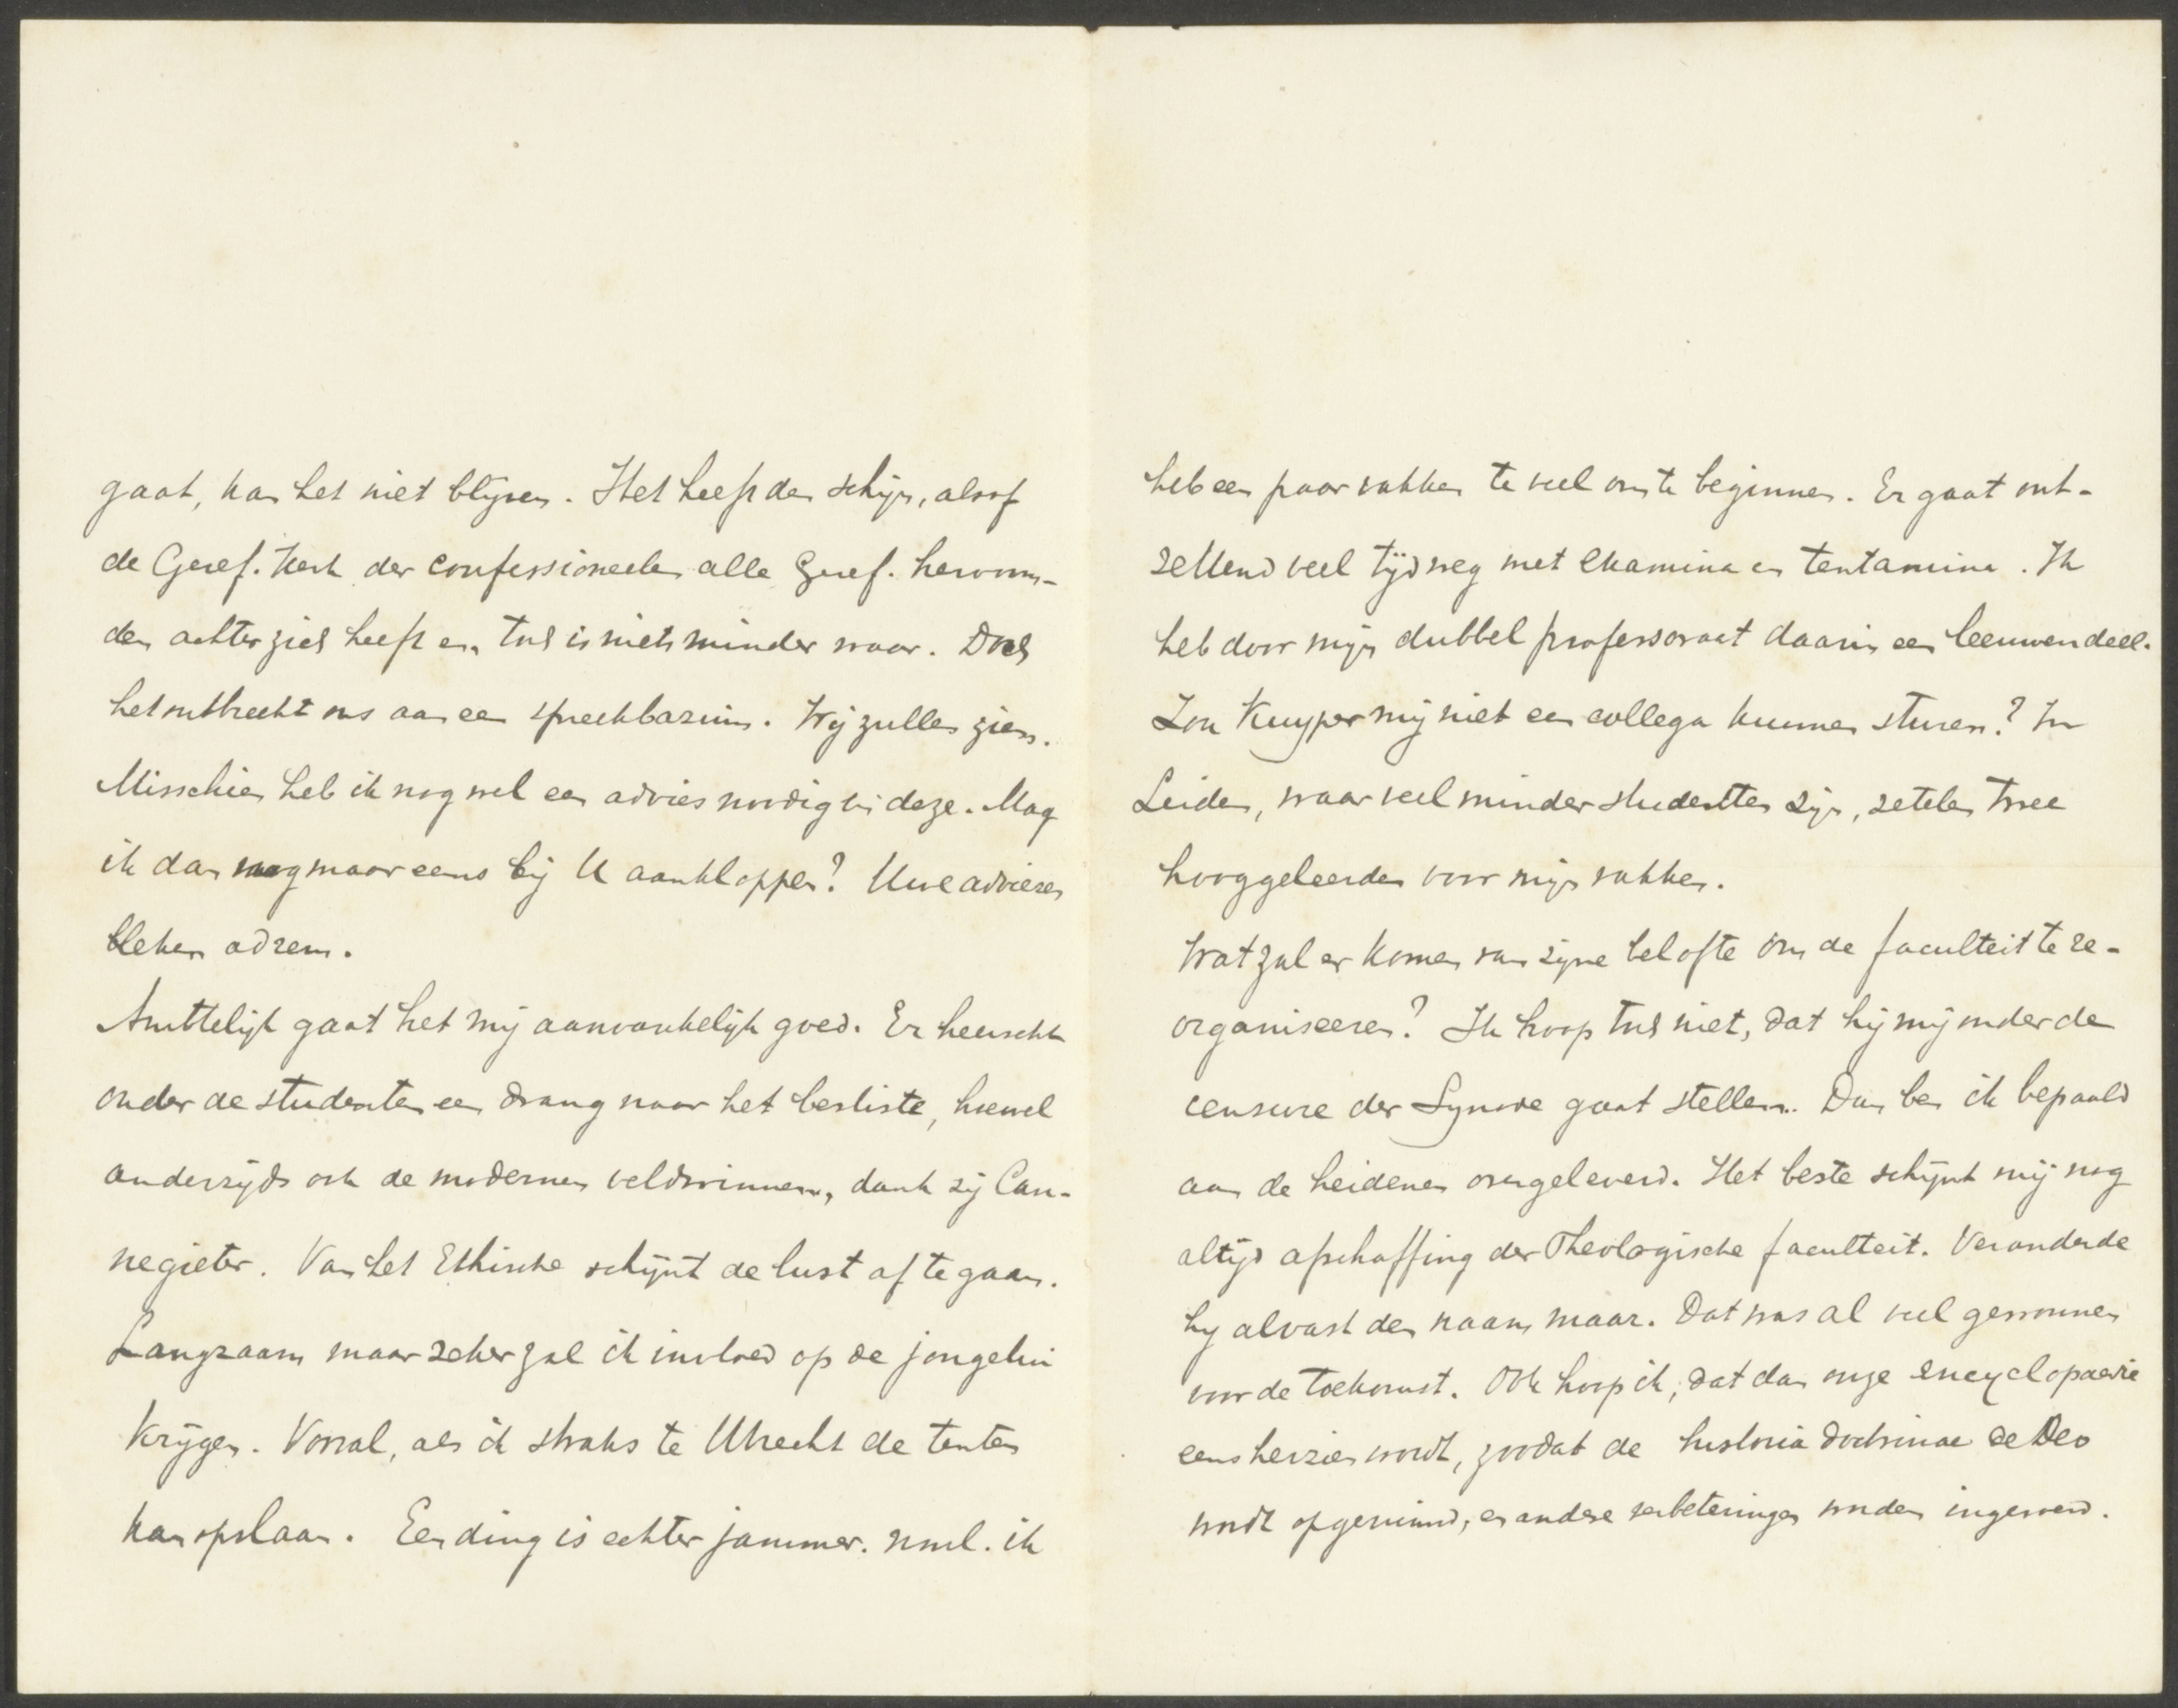 gaat, kan het niet blijven. Het heeft den schijn, alsof
de Geref. Kerk der confessioneelen alle Geref. hervorm-
den achter zich heeft en toch is niets minder waar. Doch
het ontbreekt ons aan een spreekbazuin. Wij zullen zien.
Misschien heb ik nog wel een advies noodig in deze. Mag
ik dan nog maar eens bij U aankloppen? Uwe adviezen
bleken ad rem.
Ambtelijk gaat het mij aanvankelijk goed. Er heerscht
onder de studenten een drang naar het besliste, hoewel
anderzijds ook de modernen veldwinnen, dank zij Can-
negieter. Van het Ethische schijnt de lust af te gaan.
Langzaam maar zeker zal ik invloed op de jongelui
krijgen. Vooral, als ik straks te Utrecht de tenten
kan opslaan. Een ding is echter jammer. nml. ik
heb een paar vakken te veel om te beginnen. Er gaat ont-
zettend veel tijd weg met examina en tentamina. Ik
heb door mijn dubbel professoraat daarin een leeuwendeel.
Zou Kuyper mij niet een collega kunnen sturen? In
Leiden, waar veel minder studenten zijn, zetelen twee
hooggeleerden voor mijn vakken.
Wat zal er komen van zijne belofte om de faculteit te re-
organiseeren? Ik hoop toch niet, dat hij mij onder de
censure der Synode gaat stellen. Dan ben ik bepaald
aan de heidenen overgeleverd. Het beste schijnt mij nog
altijd afschaffing der Theologische faculteit. Veranderde
hy alvast den naam maar. Dat was al veel gewonnen
voor de toekomst. Ook hoop ik, dat dan onze encyclopaedie
eens herzien wordt, zoodat de historia doctrinae de Deo
wordt opgeruimd, en andere verbeteringen worden ingevoerd.